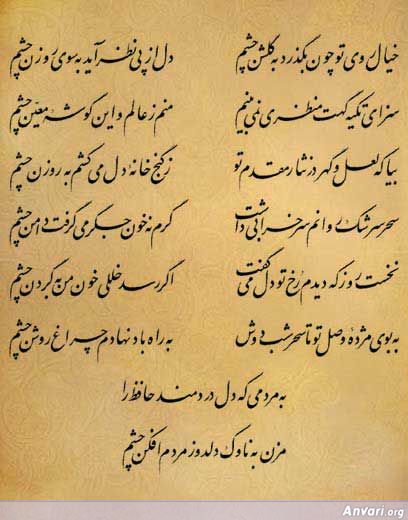 خیال روی تو چون بگذرد به گلشن چشم دل از پی نظر آید به سوی روزن چشم
سزای تکیه گهت منظری نمی بینم منم ز عالم و این گوشهٔ معین چشم
بیا که لعل و گهر در نثار مقدم تو ز گنج خانهٔ دل می کشم به روزن چشم
سحر سرشک روانم سر خرابی داشت گرم نه خون جگر می گرفت دامن چشم
نخست روز که دیدم رخ تو دل می گفت اگر رسد خللی خون من به گردن چشم
به بوی مژدهٔ وصل تو تا سحر شب دوش به راه باد نهادم چراغ روشن چشم
به مردمی که دل دردمند حافظ را
مزن به ناوک دلدوز مردم افکن چشم
Anvari.org